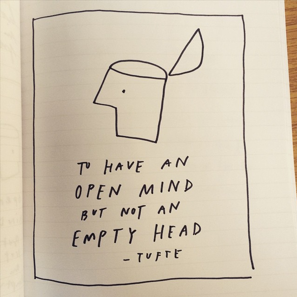 TO HAVE AN
OPEN MIND
BUT NOT AN
EMPTY HEAD
- TUFTE